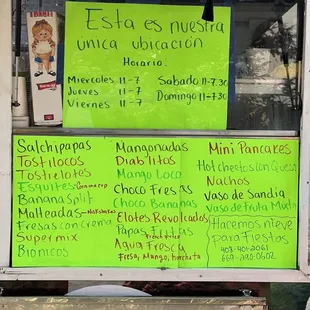 Esta es nuestra
única ubicación
Horario.
Miercoles 11-7
Jueves 11-7
Viernes 11-7
Sabado 11-7.30
Domingo 11-7.30
Salchipapas
Tostilocos
Tostielotes
Esquites
Banana Split
Malteadas
Fresas con Crema
Supermix
Bionicos
Mangonadas
Diablitos
Mango Loco
Choco Fresas
Choco Bananas
Elotes Revolcados
Papas Fritas
Agua Fresca
Fresa, Mango, horchata
Mini Pancakes
Hot cheetos con Queso
Nachos
Vaso de Sandia
Vaso de Fruta Mixta
Hacemos nieve
para Fiestas
408-401-2061
669-290-0602